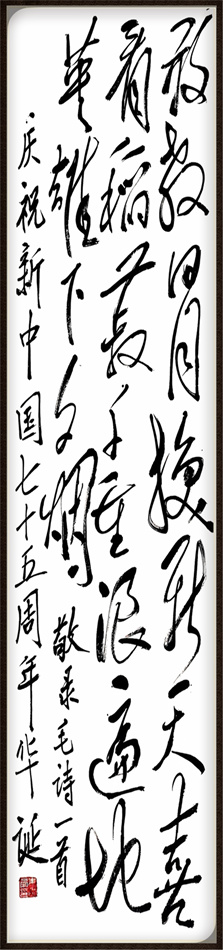 敢教日月换新天喜
看稻菽千重浪遍地
英雄下夕烟
敬录毛诗一首
庆祝新中国七十五周年华诞